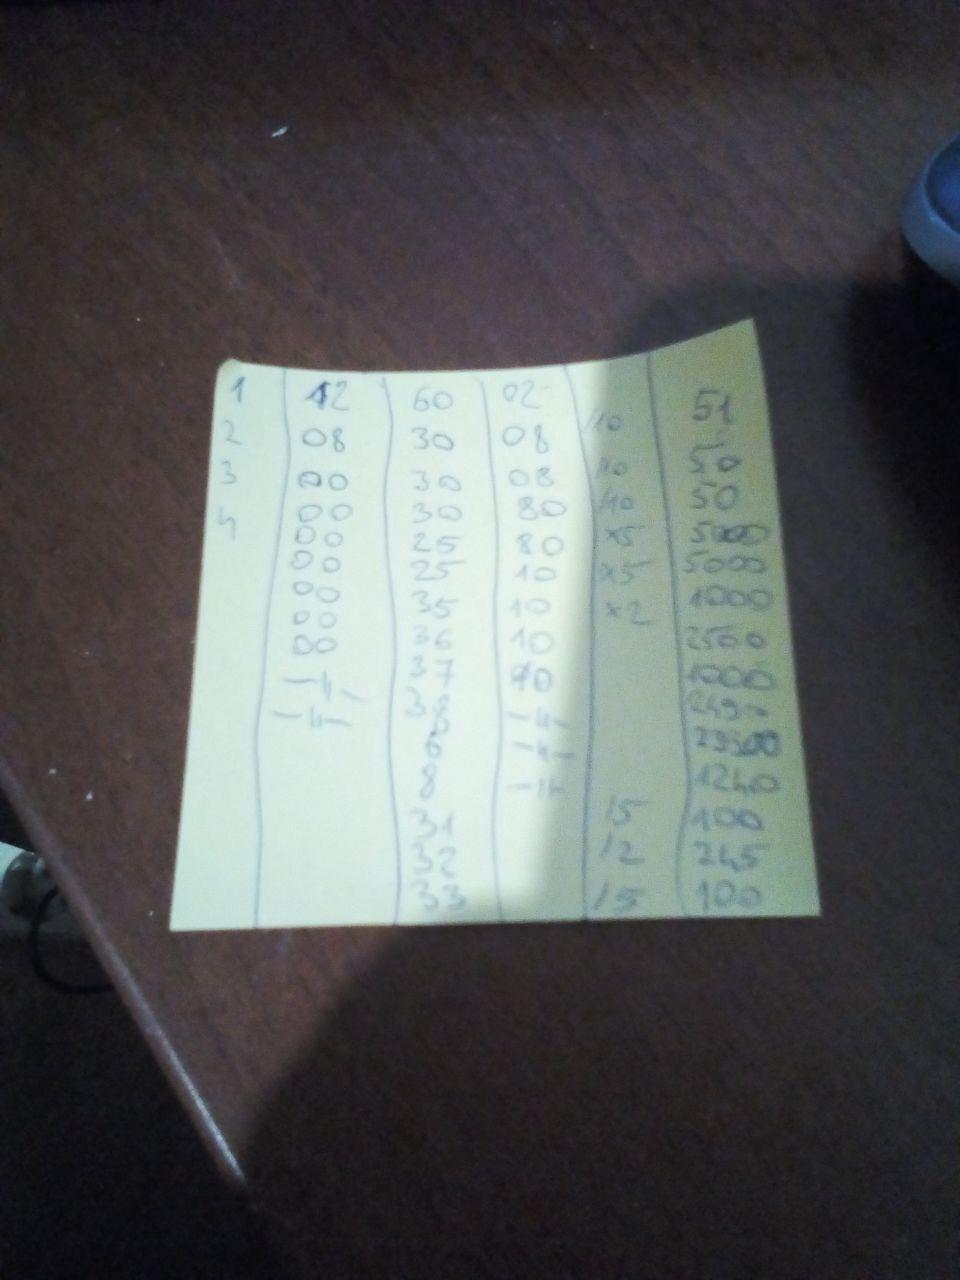 1 12 60 02 51
2 08 30 08 /10 50
3 00 30 08 /10 50
4 00 30 80 /10 5000
00 25 80 x5 5000
00 25 10 x5 1000
00 35 10 x2 2500
00 36 10 1000
00 37 10 2490
-11- 38 -11- 29500
-11- 8 -11- 1240
8 -11-
31 /5 100
32 /2 245
33 /5 100